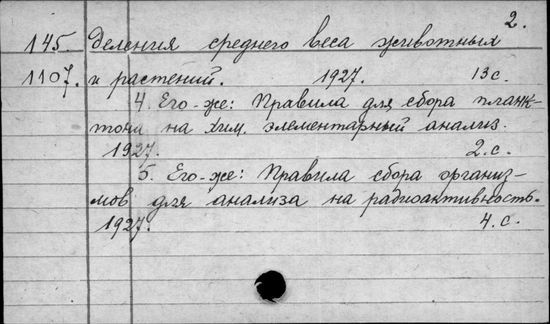 2.
145. деления среднего веса животных
1107. и растений. 1927. 13 с.
4. Его-же: Правила для сбора планк-
тона на хим. элементарный анализ.
1927. 2. с.
5. Его-же: Правила сбора организ-
мов для анализа на радиоактивность.
1927. 4. с.